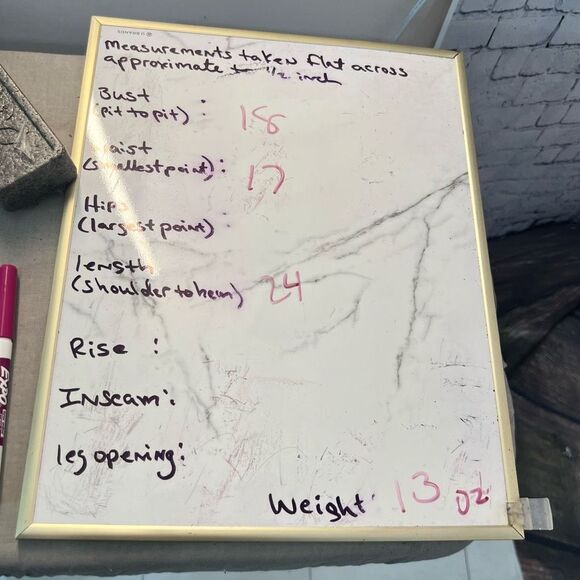 U BRANDS
Measurements taken flat across
approximate to 1/2 inch
Bust
(pit to pit) :
18
Waist
(smallest point) :
17
Hips :
(largest point)
length
(shoulder to hem)
24
Rise :
Inseam :
leg opening :
Weight : 13 oz
EXPO